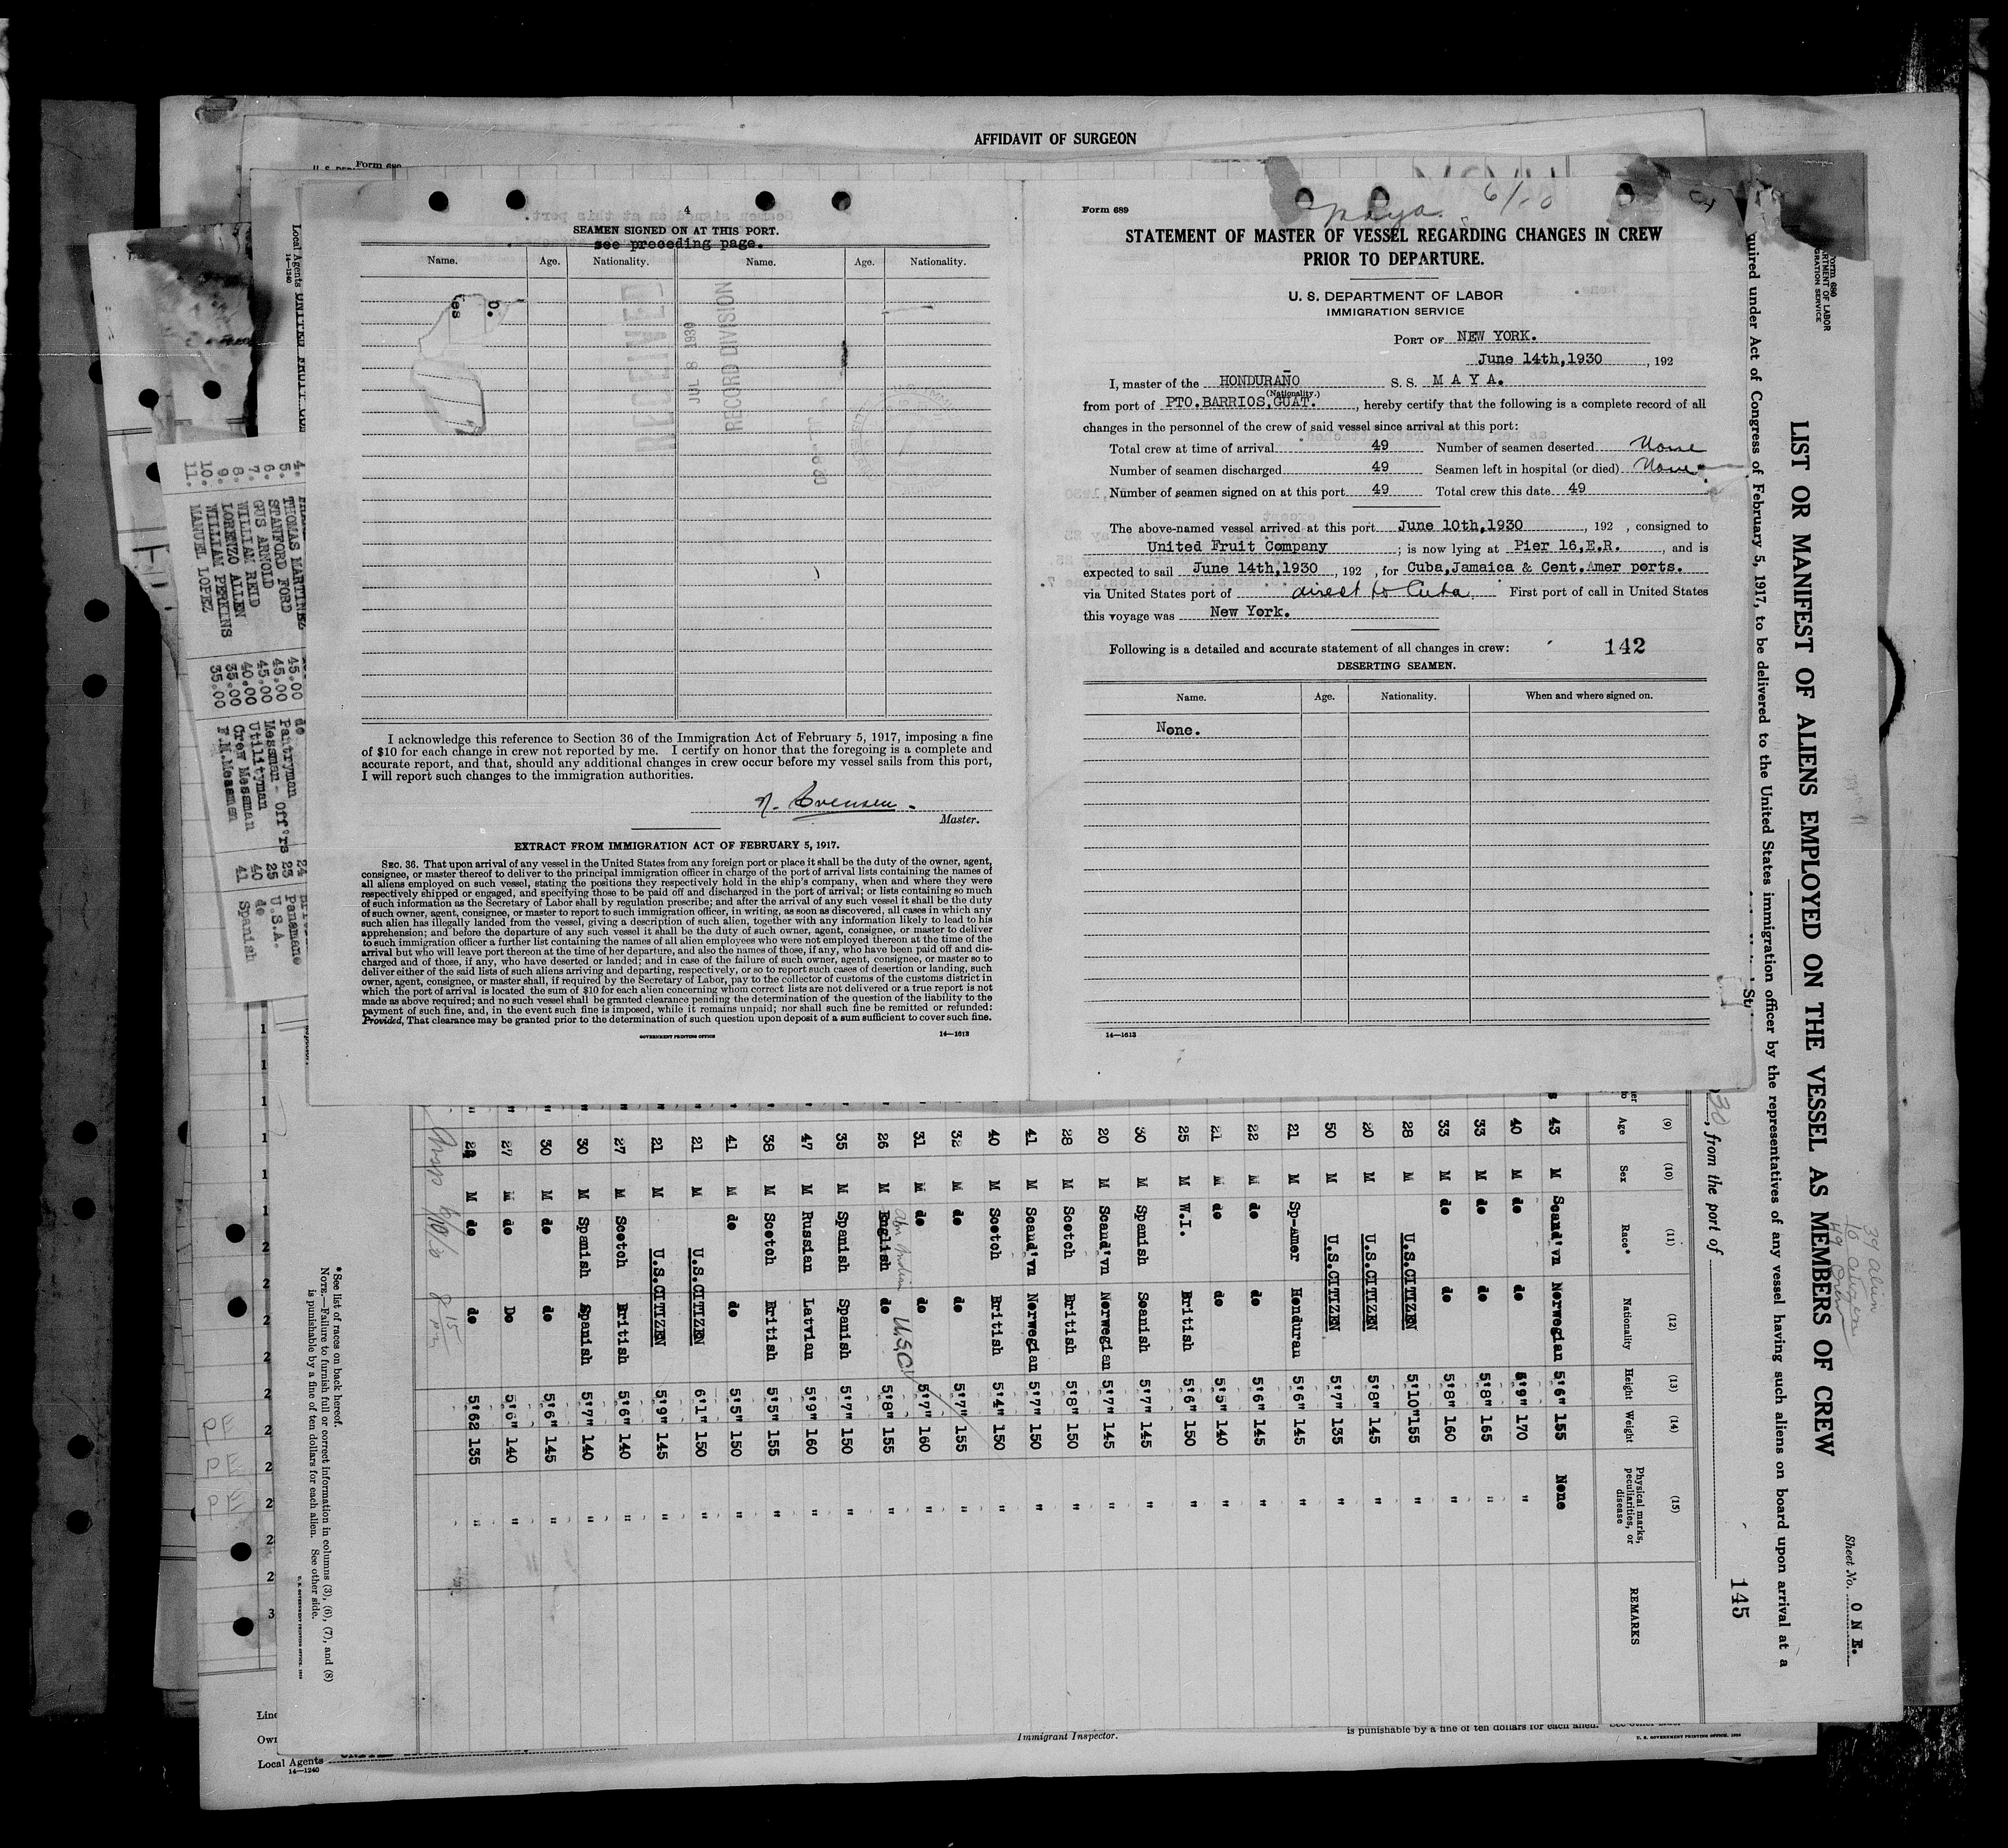 AFFIDAVIT OF SURGEON
Form 689
4
SEAMEN SIGNED ON AT THIS PORT.
see preceding page.
Name. Age. Nationality. Name. Age. Nationality.
RECEIVED
JUL 8 1930
RECORD DIVISION
I acknowledge this reference to Section 36 of the Immigration Act of February 5, 1917, imposing a fine
of $10 for each change in crew not reported by me. I certify on honor that the foregoing is a complete and
accurate report, and that, should any additional changes in crew occur before my vessel sails from this port,
I will report such changes to the immigration authorities.
Master.
EXTRACT FROM IMMIGRATION ACT OF FEBRUARY 5, 1917.
SEC. 36. That upon arrival of any vessel in the United States from any foreign port or place it shall be the duty of the owner, agent,
consignee, or master thereof to deliver to the principal immigration officer in charge of the port of arrival lists containing the names of
all aliens employed on such vessel, stating the positions they respectively hold in the ship's company, when and where they were
respectively shipped or engaged, and specifying those to be paid off and discharged in the port of arrival; or lists containing so much
of such information as the Secretary of Labor shall by regulation prescribe; and after the arrival of any such vessel it shall be the duty
of such owner, agent, consignee, or master to report to such immigration officer, in writing, as soon as discovered, all cases in which any
such alien has illegally landed from the vessel, giving a description of such alien, together with any information likely to lead to his
apprehension; and before the departure of any such vessel it shall be the duty of such owner, agent, consignee, or master to deliver
to such immigration officer a further list containing the names of all alien employees who were not employed thereon at the time of the
arrival but who will leave port thereon at the time of her departure, and also the names of those, if any, who have been paid off and dis-
charged and of those, if any, who have deserted or landed; and in case of the failure of such owner, agent, consignee, or master so to
deliver either of the said lists of such aliens arriving and departing, respectively, or so to report such cases of desertion or landing, such
owner, agent, consignee, or master shall, if required by the Secretary of Labor, pay to the collector of customs of the customs district in
which the port of arrival is located the sum of $10 for each alien concerning whom correct lists are not delivered or a true report is not
made as above required; and no such vessel shall be granted clearance pending the determination of the question of the liability to the
payment of such fine, and, in the event such fine is imposed, while it remains unpaid; nor shall such fine be remitted or refunded:
Provided, That clearance may be granted prior to the determination of such question upon deposit of a sum sufficient to cover such fine.
GOVERNMENT PRINTING OFFICE 14—1613
Form 689
Maya. 6/10
STATEMENT OF MASTER OF VESSEL REGARDING CHANGES IN CREW
PRIOR TO DEPARTURE.
U. S. DEPARTMENT OF LABOR
IMMIGRATION SERVICE
PORT OF NEW YORK.
June 14th,1930, 192
I, master of the HONDURAÑO S. S. M A Y A.
(Nationality.)
from port of PTO.BARRIOS,GUAT., hereby certify that the following is a complete record of all
changes in the personnel of the crew of said vessel since arrival at this port:
Total crew at time of arrival 49 Number of seamen deserted None
Number of seamen discharged 49 Seamen left in hospital (or died) None
Number of seamen signed on at this port 49 Total crew this date 49
The above-named vessel arrived at this port June 10th,1930, 192 , consigned to
United Fruit Company; is now lying at Pier 16,E.R., and is
expected to sail June 14th,1930, 192 , for Cuba,Jamaica & Cent.Amer ports.
via United States port of direct to Cuba First port of call in United States
this voyage was New York.
Following is a detailed and accurate statement of all changes in crew: 142
DESERTING SEAMEN.
Name. Age. Nationality. When and where signed on.
None.
14—1613
4. THOMAS MARTINEZ 45.00 de
5. STANFORD FORD 45.00 Pantryman
6. GUS ARNOLD 45.00 Messman - Off'rs
7. WILLIAM REID 40.00 Utilityman
8. LORENZO ALLEN 35.00 Crew Messman
9. WILLIAM PERKINS 35.00 F.M.Messman
10. MANUEL LOPEZ
11.
24
23 Panamane
25 U.S.A.
40 de
41 Spanish
LIST OR MANIFEST OF ALIENS EMPLOYED ON THE VESSEL AS MEMBERS OF CREW
Sheet No. O N E.
39 Alien
10 Citizens
49 Crew
quired under Act of Congress of February 5, 1917, to be delivered to the United States immigration officer by the representatives of any vessel having such aliens on board upon arrival at a
30, from the port of 145
(9) (10) (11) (12) (13) (14) (15)
Age Sex Race* Nationality Height Weight Physical marks, peculiarities, or disease REMARKS
43 M Scand'vn Norwegian 5'6" 155 None
40 M do do 5'9" 170 "
33 M do do 5'8" 165 "
33 M do do 5'8" 160 "
28 M U.S.CITIZEN 5'10" 155 "
20 M U.S.CITIZEN 5'8" 145 "
50 M U.S.CITIZEN 5'7" 135 "
21 M Sp-Amer Honduran 5'6" 145 "
22 M do do 5'6" 145 "
21 M do do 5'5" 140 "
25 M W.I. British 5'6" 150 "
30 M Spanish Spanish 5'7" 145 "
20 M Scand'vn Norwegian 5'7" 145 "
28 M Scotch British 5'8" 150 "
41 M Scand'vn Norwegian 5'7" 150 "
40 M Scotch British 5'4" 150 "
32 M do do 5'7" 155 "
31 M do do 5'7" 160 "
26 M English do U.S.C. 5'8" 155 "
35 M Spanish Spanish 5'7" 150 "
47 M Russian Latvian 5'9" 160 "
38 M Scotch British 5'5" 155 "
41 M do do 5'5" 150 "
21 M U.S.CITIZEN 6'1" 150 "
21 M U.S.CITIZEN 5'9" 145 "
27 M Scotch British 5'6" 140 "
30 M Spanish Spanish 5'7" 140 "
30 M do do 5'6" 145 "
27 M do Do 5'6" 140 "
28 M do do 5'62 135 "
*See list of races on back hereof.
NOTE.—Failure to furnish full or correct information in columns (3), (6), (7), and (8)
is punishable by a fine of ten dollars for each alien. See other side.
PE
PE
PE
Line
Own
Local Agents
14—1240
Immigrant Inspector.
is punishable by a fine of ten dollars for each alien.
U. S. GOVERNMENT PRINTING OFFICE